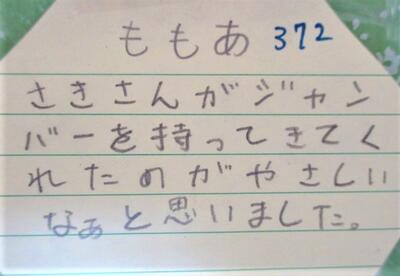 ももあ 372
さきさんがジャン
バーを持ってきてく
れたのがやさしい
なぁと思いました。